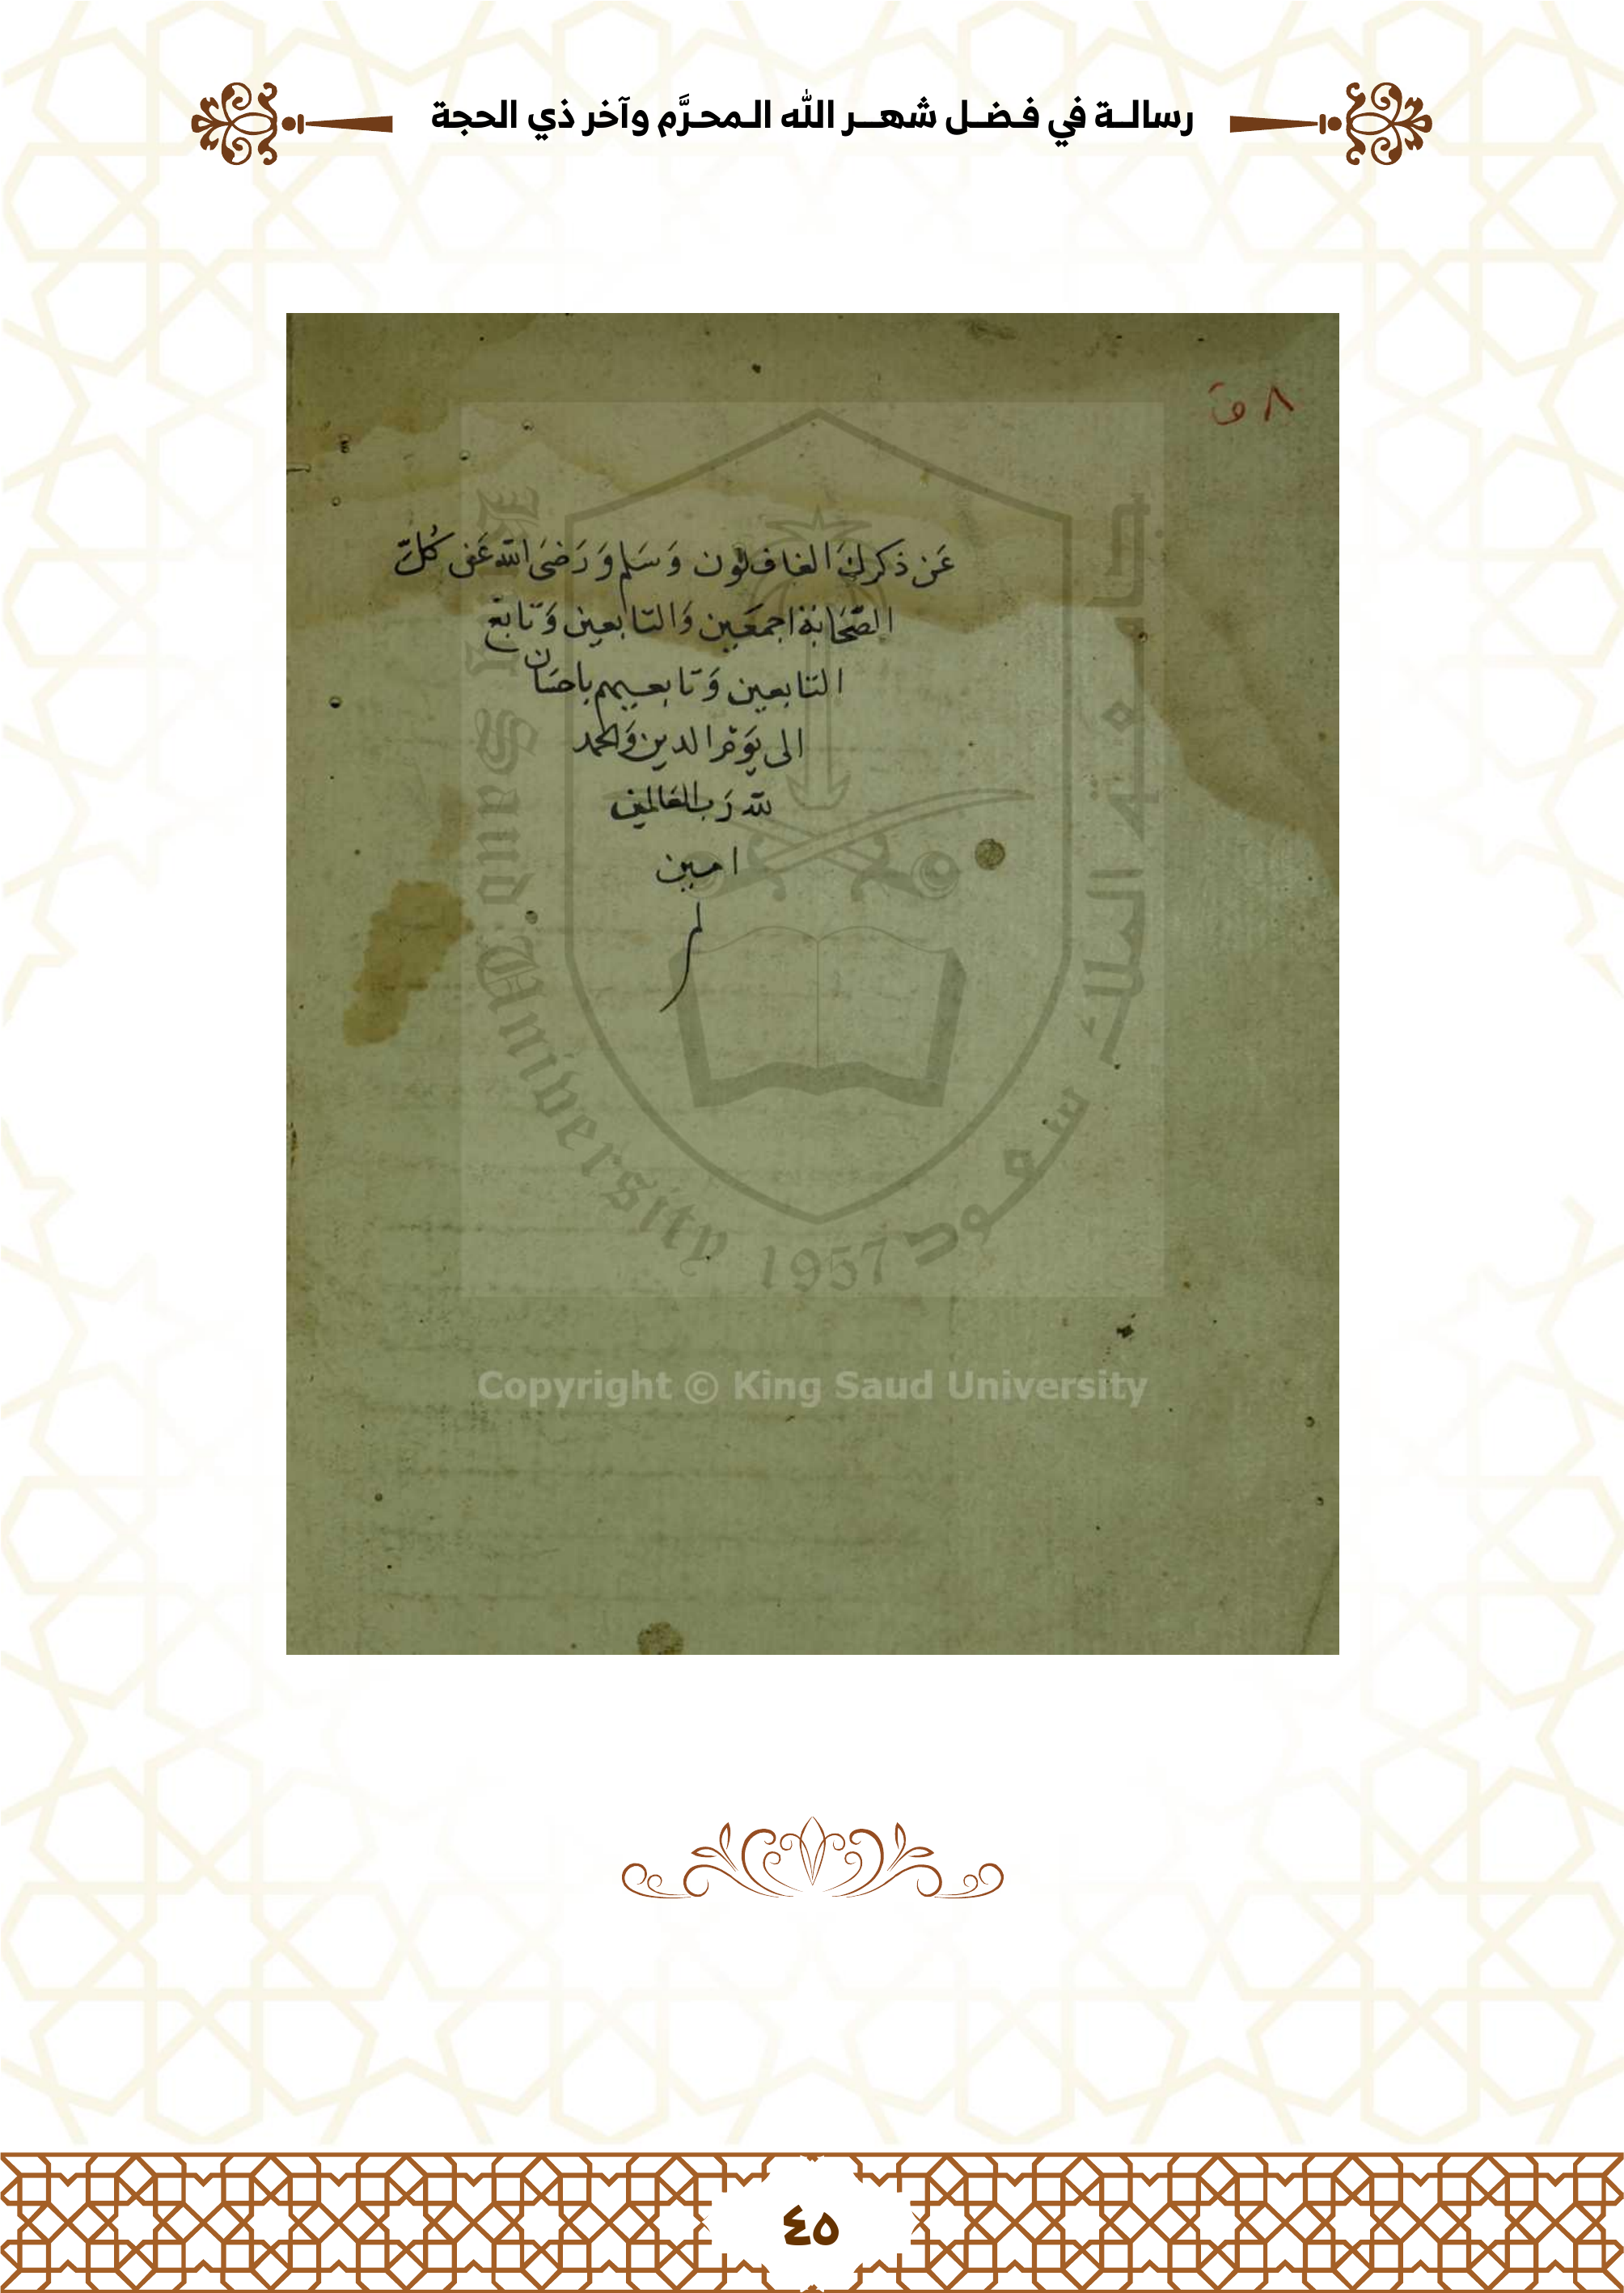 رسالة في فضل شهر الله المحرَّم وآخر ذي الحجة
٨ ق
عَن ذكرك الغافلون وَسَلم وَرَضىَ الله عَن كُلِّ
الصَّحَابَة اجمعَين وَالتابعين وَتابع
التابعين وَتابعيهم باحسَان
الى يَوم الدين وَالحمد
لله رَب العَالمين
امين
جامعة الملك سعود
King Saud University 1957
Copyright © King Saud University
٤٥